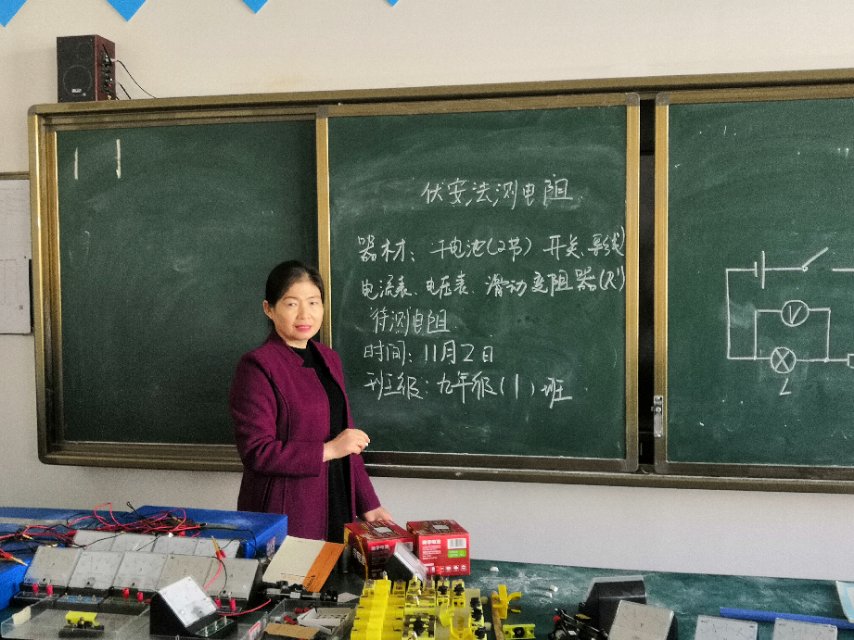 伏安法测电阻
器材：干电池(2节) 开关、导线
电流表、电压表、滑动变阻器(R')
待测电阻
时间：11月2日
班级：九年级(1)班
V
L